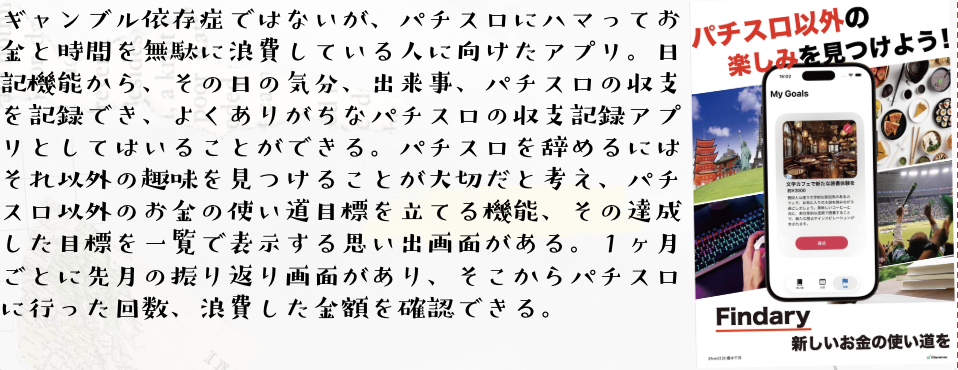 ギャンブル依存症ではないが、パチスロにハマってお
金と時間を無駄に浪費している人に向けたアプリ。日
記機能から、その日の気分、出来事、パチスロの収支
を記録でき、よくありがちなパチスロの収支記録アプ
リとしてはいることができる。パチスロを辞めるには
それ以外の趣味を見つけることが大切だと考え、パチ
スロ以外のお金の使い道目標を立てる機能、その達成
した目標を一覧で表示する思い出画面がある。1ヶ月
ごとに先月の振り返り画面があり、そこからパチスロ
に行った回数、浪費した金額を確認できる。
パチスロ以外の
楽しみを見つけよう!
My Goals
文字カフェで新たな読書体験を
約¥3000
Findary
新しいお金の使い道を